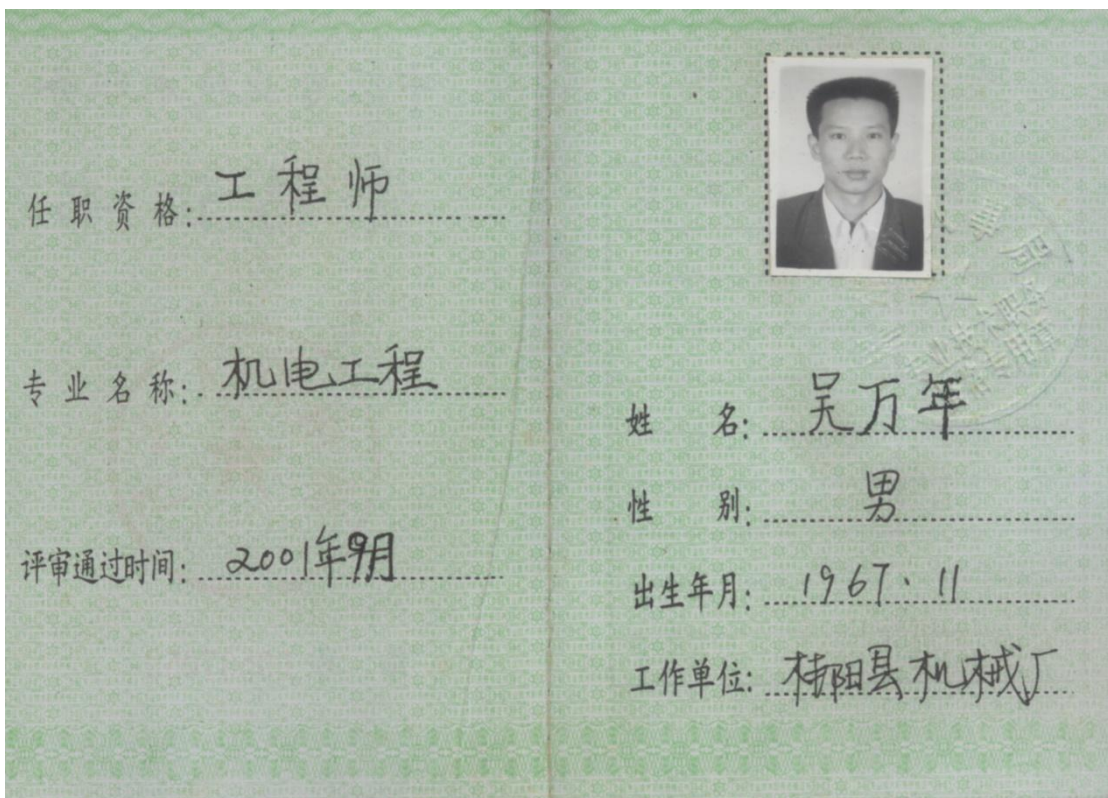 任职资格:工程师
专业名称:机电工程
评审通过时间:2001年9月
姓 名:吴万年
性 别:男
出生年月:1967.11
工作单位:桂阳县机械厂